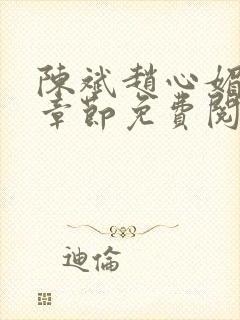 陳斌趙心媚
章節免費閱
迪倫